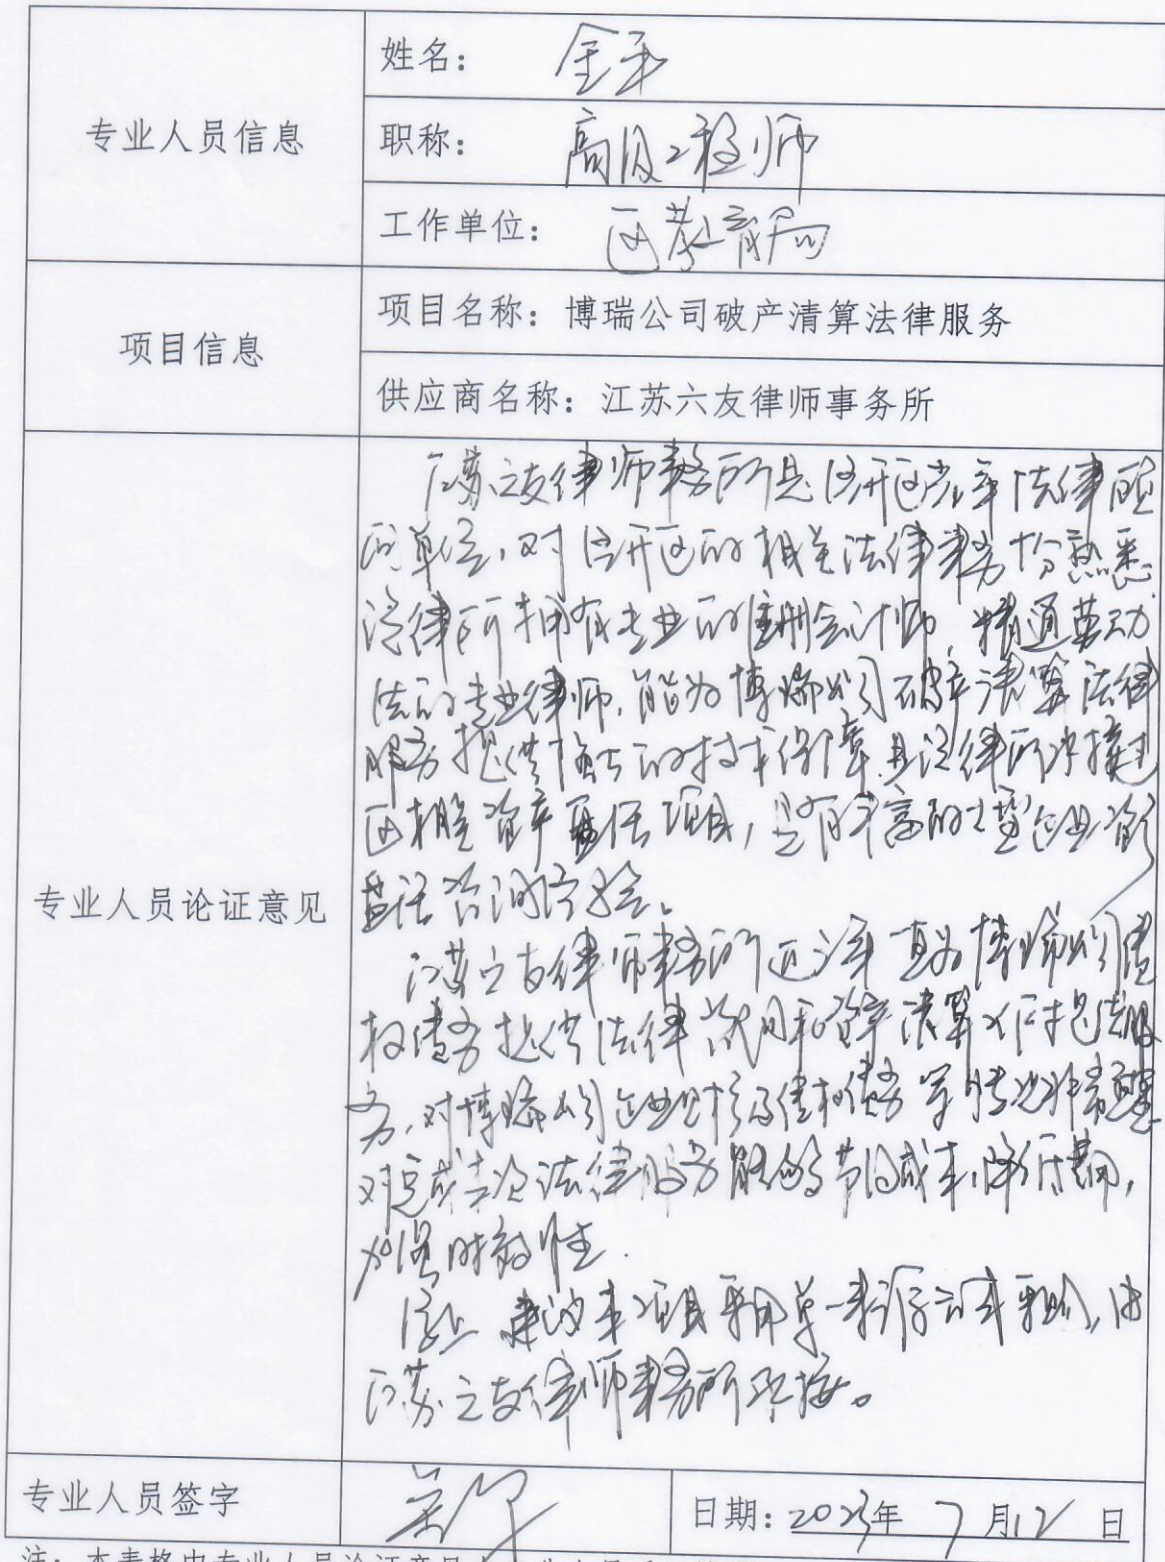 专业人员信息
姓名：
职称：高级工程师
工作单位：区教育局
项目信息
项目名称：博瑞公司破产清算法律服务
供应商名称：江苏六友律师事务所
专业人员论证意见
江苏六友律师事务所是经开区常年法律顾
问单位，对经开区的相关法律事务十分熟悉
该律所拥有专业的注册会计师，精通劳动
法的专业律师，能为博瑞公司破产清算法律
服务提供强大的技术保障，且该律所
区相关资产盘活项目，具有丰富的大型企业资产
盘活咨询经验。
江苏六友律师事务所近几年一直为博瑞公司债
权债务提供法律顾问和资产清算法服
务，对博瑞公司企业债权债务等情况非常
对完成本次法律服务能够节约成本，降低费用，
加强时效性。
综上，建议本项目采用单一来源方式采购，由
江苏六友律师事务所承接。
专业人员签字
日期：2023年7月12日